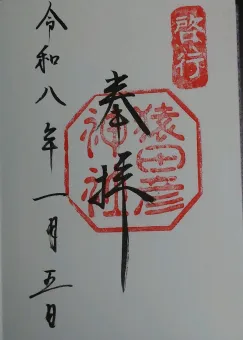 啓行
奉拝
猿田彦
神社
令和八年一月五日